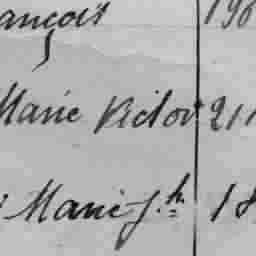 ançois 196
Marie Victor 211
Marie J.h 18